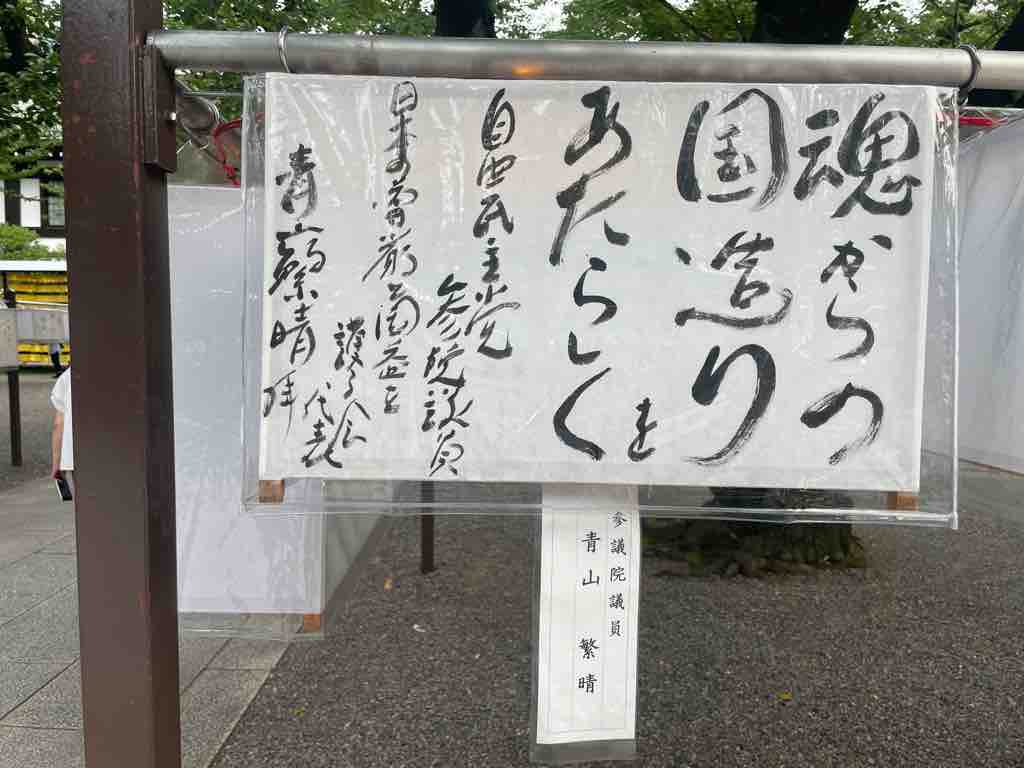 魂からの
国造りを
あたらしく
自由民主党
参院議員
日本の尊厳と国益を
護る会
代表
青山繁晴 拝
参議院議員
青山 繁晴